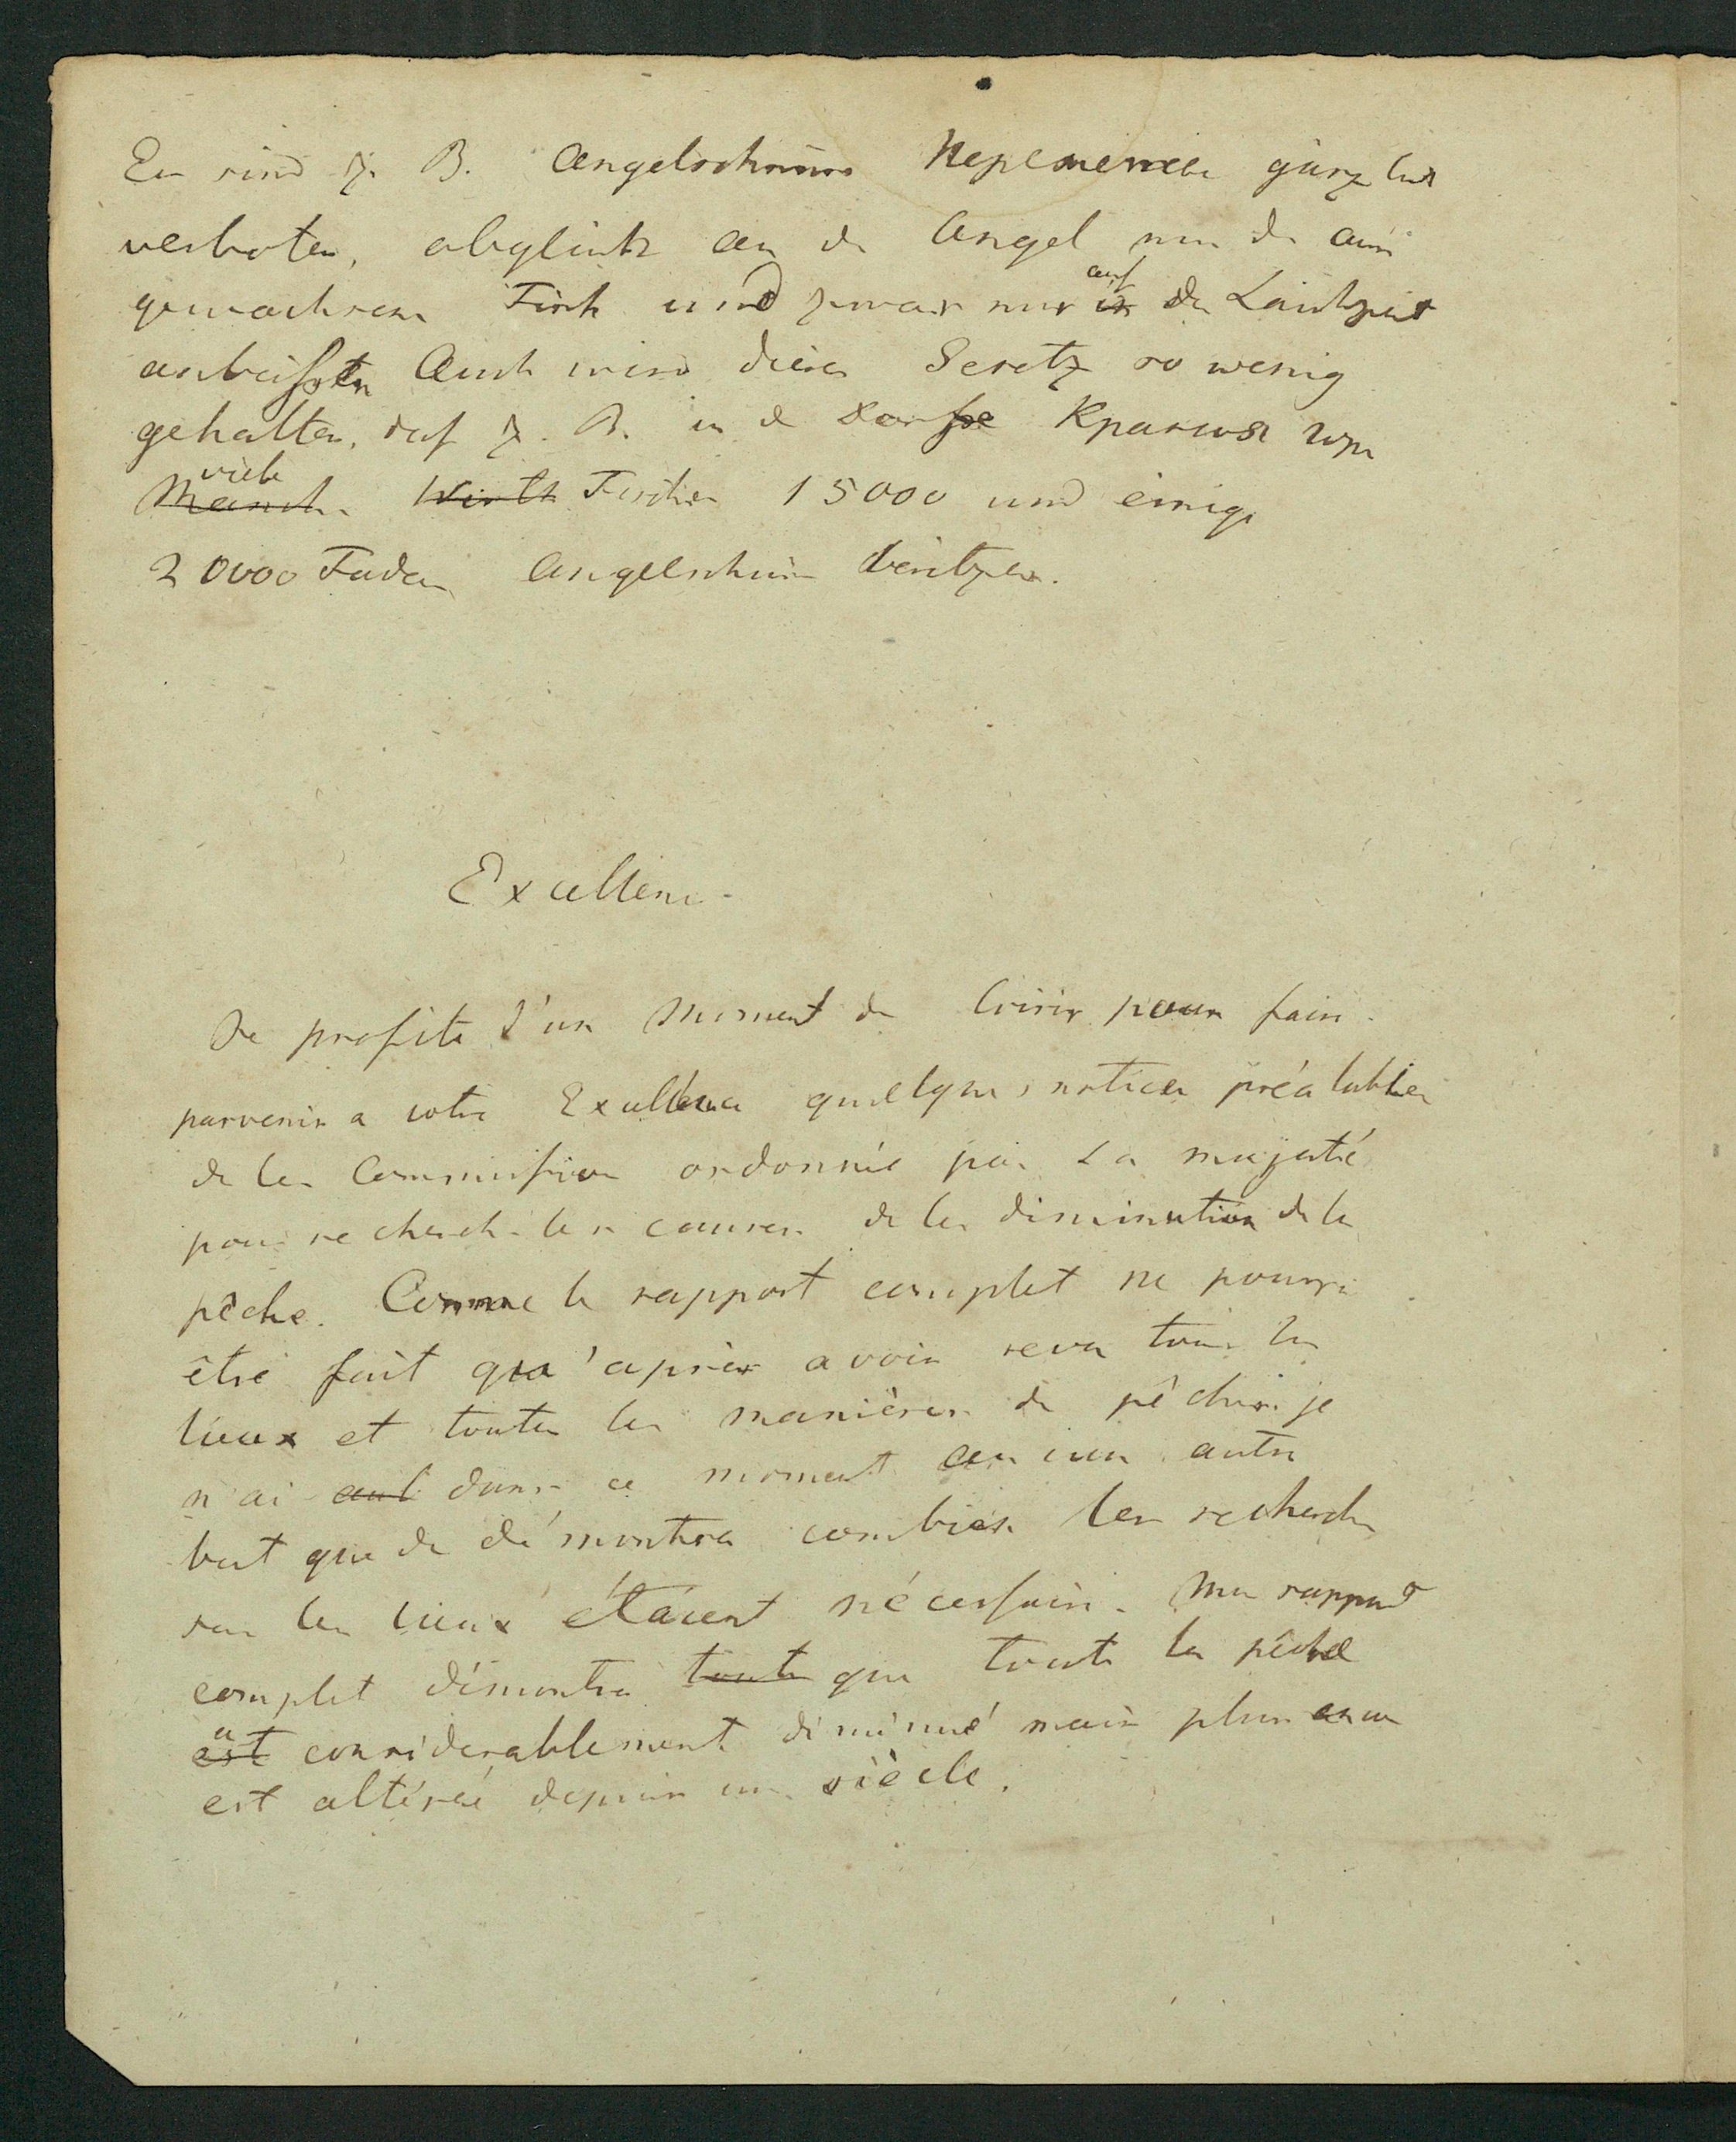 Es sind z. B. Angelschnüre gänzlich
verboten, obgleich an die Angel nur die aus
gewachsenen Fische und zwar nur auf in der Laichzeit
anbeißen Auch wird dieses Gesetz so wenig
gehalten, daß z. B. in d Dorfe
viele Manche Wirth Fischer 15000 und einige
20000 Faden Angelschnüre besitzen.
Excellence
Je profite d'un moment de loisir pour faire
parvenir a votre Excellence quelques notices préalables
de la Commission ordonnée par Sa majesté
pour recherch les causes de la diminution de la
pêche. Comme le rapport complet ne pourra
être fait qu'après avoir revu tous les
lieux et toutes les manières de pêcher je
n'ai dans ce moment aucun autre
but que de démontrer combien les recherches
sur les lieux étaient nécessaire. Mon rapport
complet démontre toute que toute la pêche
a est considerablement diminué mais plus encore
est altérée depuis un siècle.